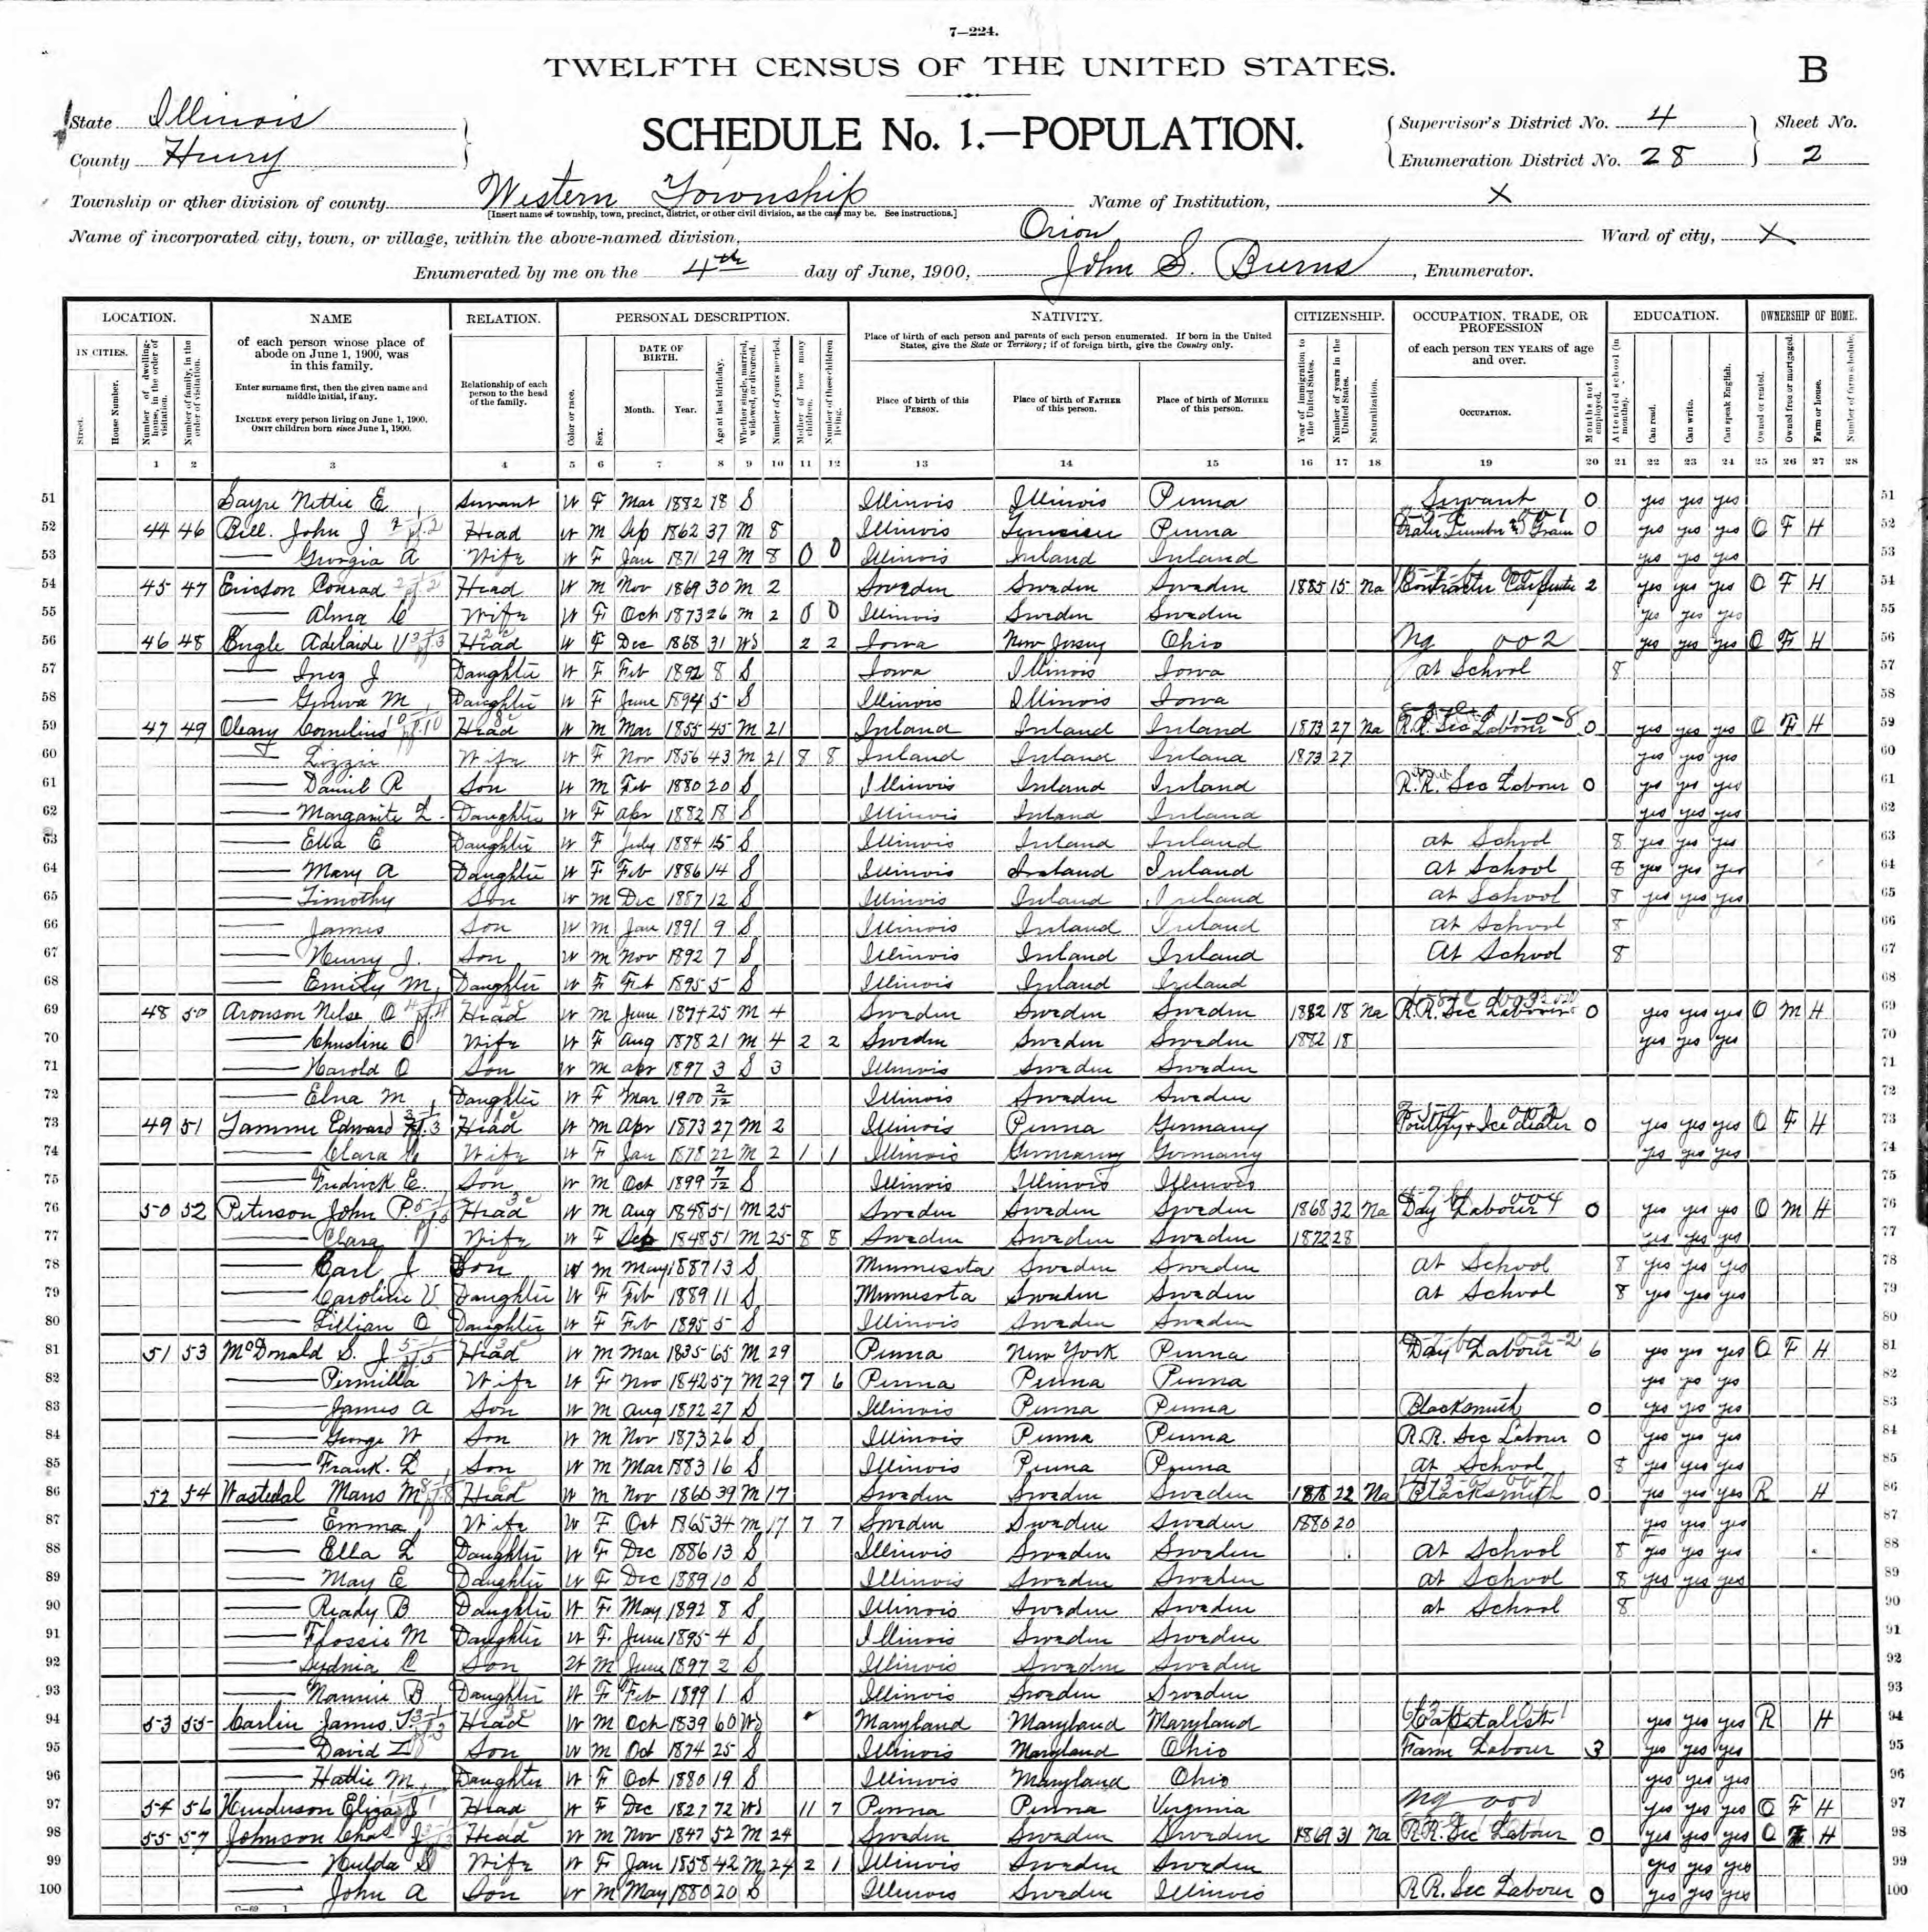 7—224.
TWELFTH CENSUS OF THE UNITED STATES.
B
State Illinois
County Henry
SCHEDULE No. 1.—POPULATION.
Supervisor's District No. 4
Enumeration District No. 28
Sheet No.
2
Township or other division of county Western Township
[Insert name of township, town, precinct, district, or other civil division, as the case may be. See instructions.]
Name of Institution, X
Name of incorporated city, town, or village, within the above-named division, Orion
Ward of city, X
Enumerated by me on the 4th day of June, 1900, John S. Burns, Enumerator.
LOCATION. NAME RELATION. PERSONAL DESCRIPTION. NATIVITY. CITIZENSHIP. OCCUPATION, TRADE, OR PROFESSION EDUCATION. OWNERSHIP OF HOME.
IN CITIES. Street. House Number. Number of dwelling-house, in the order of visitation. Number of family, in the order of visitation.
of each person whose place of abode on June 1, 1900, was in this family.
Enter surname first, then the given name and middle initial, if any.
INCLUDE every person living on June 1, 1900. OMIT children born since June 1, 1900.
Relationship of each person to the head of the family.
Color or race. Sex. DATE OF BIRTH. Month. Year. Age at last birthday. Whether single, married, widowed, or divorced. Number of years married. Mother of how many children. Number of these children living.
Place of birth of each person and parents of each person enumerated. If born in the United States, give the State or Territory; if of foreign birth, give the Country only.
Place of birth of this PERSON. Place of birth of FATHER of this person. Place of birth of MOTHER of this person.
Year of immigration to the United States. Number of years in the United States. Naturalization.
of each person TEN YEARS of age and over.
OCCUPATION. Months not employed.
Attended school (in months). Can read. Can write. Can speak English.
Owned or rented. Owned free or mortgaged. Farm or house. Number of farm schedule.
1 2 3 4 5 6 7 8 9 10 11 12 13 14 15 16 17 18 19 20 21 22 23 24 25 26 27 28
51 Sayre Nettie E Servant W F Mar 1882 18 S Illinois Illinois Penna Servant 0 yes yes yes 51
52 44 46 Bill. John J Head W M Sep 1862 37 M 8 Illinois Penna 0 yes yes yes O F H 52
53 —— Georgia A Wife W F Jan 1871 29 M 8 0 0 Illinois Ireland Ireland yes yes yes 53
54 45 47 Ericson Conrad Head W M Nov 1869 30 M 2 Sweden Sweden Sweden 1885 15 Na Contractor Carpenter 2 yes yes yes O F H 54
55 —— Alma C Wife W F Oct 1873 26 M 2 0 0 Illinois Sweden Sweden yes yes yes 55
56 46 48 Engle Adelaide V Head W F Dec 1868 31 Wd 2 2 Iowa New Jersey Ohio Ng 002 yes yes yes O F H 56
57 —— Inez J Daughter W F Feb 1892 8 S Iowa Illinois Iowa at School 8 57
58 —— M Daughter W F June 1894 5 S Illinois Illinois Iowa 58
59 47 49 Oleary Cornelius Head W M Mar 1855 45 M 21 Ireland Ireland Ireland 1873 27 Na R.R. Sec Labour 0 yes yes yes O F H 59
60 —— Lizzie Wife W F Nov 1856 43 M 21 8 8 Ireland Ireland Ireland 1873 27 yes yes yes 60
61 —— Daniel R Son W M Feb 1880 20 S Illinois Ireland Ireland R.R. Sec Labour 0 yes yes yes 61
62 —— Margarite L. Daughter W F Apr 1882 18 S Illinois Ireland Ireland yes yes yes 62
63 —— Ella E Daughter W F July 1884 15 S Illinois Ireland Ireland at School 8 yes yes yes 63
64 —— Mary A Daughter W F Feb 1886 14 S Illinois Ireland Ireland at School 8 yes yes yes 64
65 —— Timothy Son W M Dec 1887 12 S Illinois Ireland Ireland at School 8 yes yes yes 65
66 —— James Son W M Jan 1891 9 S Illinois Ireland Ireland at School 8 66
67 —— Henry J. Son W M Nov 1892 7 S Illinois Ireland Ireland At School 8 67
68 —— Emily M, Daughter W F Feb 1895 5 S Illinois Ireland Ireland 68
69 48 50 Aronson Nelse O Head W M June 1874 25 M 4 Sweden Sweden Sweden 1882 18 Na R.R. Sec Labour 0 yes yes yes O M H 69
70 —— Christine O Wife W F Aug 1878 21 M 4 2 2 Sweden Sweden Sweden 1882 18 yes yes yes 70
71 —— Harold O Son W M Apr 1897 3 S 3 Illinois Sweden Sweden 71
72 —— Elna M Daughter W F Mar 1900 2/12 Illinois Sweden Sweden 72
73 49 51 Edward Head W M Apr 1873 27 M 2 Illinois Penna Germany Poultry & Ice dealer 0 yes yes yes O F H 73
74 —— Clara Wife W F Jan 1878 22 M 2 1 1 Illinois Germany Germany yes yes yes 74
75 —— Fredrick E. Son W M Oct 1899 7/12 S Illinois Illinois Illinois 75
76 50 52 Peterson John P. Head W M Aug 1848 51 M 25 Sweden Sweden Sweden 1868 32 Na Day Labour 0 yes yes yes O M H 76
77 —— Clara Wife W F Sep 1848 51 M 25 8 8 Sweden Sweden Sweden 1872 28 yes yes yes 77
78 —— Carl J Son W M May 1887 13 S Minnesota Sweden Sweden at School 8 yes yes yes 78
79 —— Caroline V Daughter W F Feb 1889 11 S Minnesota Sweden Sweden at School 8 yes yes yes 79
80 —— Lillian O Daughter W F Feb 1895 5 S Illinois Sweden Sweden 80
81 51 53 McDonald S. J Head W M Mar 1835 65 M 29 Penna New York Penna Day Labour 6 yes yes yes O F H 81
82 —— Permilla Wife W F Nov 1842 57 M 29 7 6 Penna Penna Penna yes yes yes 82
83 —— James A Son W M Aug 1872 27 S Illinois Penna Penna Blacksmith 0 yes yes yes 83
84 —— George W Son W M Nov 1873 26 S Illinois Penna Penna R.R. Sec Labour 0 yes yes yes 84
85 —— Frank. L Son W M Mar 1883 16 S Illinois Penna Penna at School 8 yes yes yes 85
86 52 54 Wastedal Mans M Head W M Nov 1860 39 M 17 Sweden Sweden Sweden 1878 22 Na Blacksmith 0 yes yes yes R H 86
87 —— Emma Wife W F Oct 1865 34 M 17 7 7 Sweden Sweden Sweden 1880 20 yes yes yes 87
88 —— Ella L Daughter W F Dec 1886 13 S Illinois Sweden Sweden at School 8 yes yes yes 88
89 —— May E Daughter W F Dec 1889 10 S Illinois Sweden Sweden at School 8 yes yes yes 89
90 —— Ready B Daughter W F May 1892 8 S Illinois Sweden Sweden at School 8 90
91 —— Flossie M Daughter W F. June 1895 4 S Illinois Sweden Sweden 91
92 —— Sydnia C Son W M June 1897 2 S Illinois Sweden Sweden 92
93 —— Nannie B Daughter W F Feb 1899 1 S Illinois Sweden Sweden 93
94 53 55 Carlin James. T. Head W M Oct 1839 60 Wd Maryland Maryland Maryland Capitalist yes yes yes R H 94
95 —— David L Son W M Oct 1874 25 S Illinois Maryland Ohio Farm Labour 3 yes yes yes 95
96 —— Hattie M, Daughter W F Oct 1880 19 S Illinois Maryland Ohio yes yes yes 96
97 54 56 Henderson Eliza J Head W F Dec 1827 72 Wd 11 7 Penna Penna Virginia Ng yes yes yes O F H 97
98 55 57 Johnson Chas J Head W M Nov 1847 52 M 24 Sweden Sweden Sweden 1869 31 Na R.R. Sec Labour 0 yes yes yes O F H 98
99 —— Hulda S Wife W F Jan 1858 42 M 24 2 1 Illinois Sweden Sweden yes yes yes 99
100 —— John A Son W M May 1880 20 S Illinois Sweden Illinois R.R. Sec Labour 0 yes yes yes 100
C—69 1